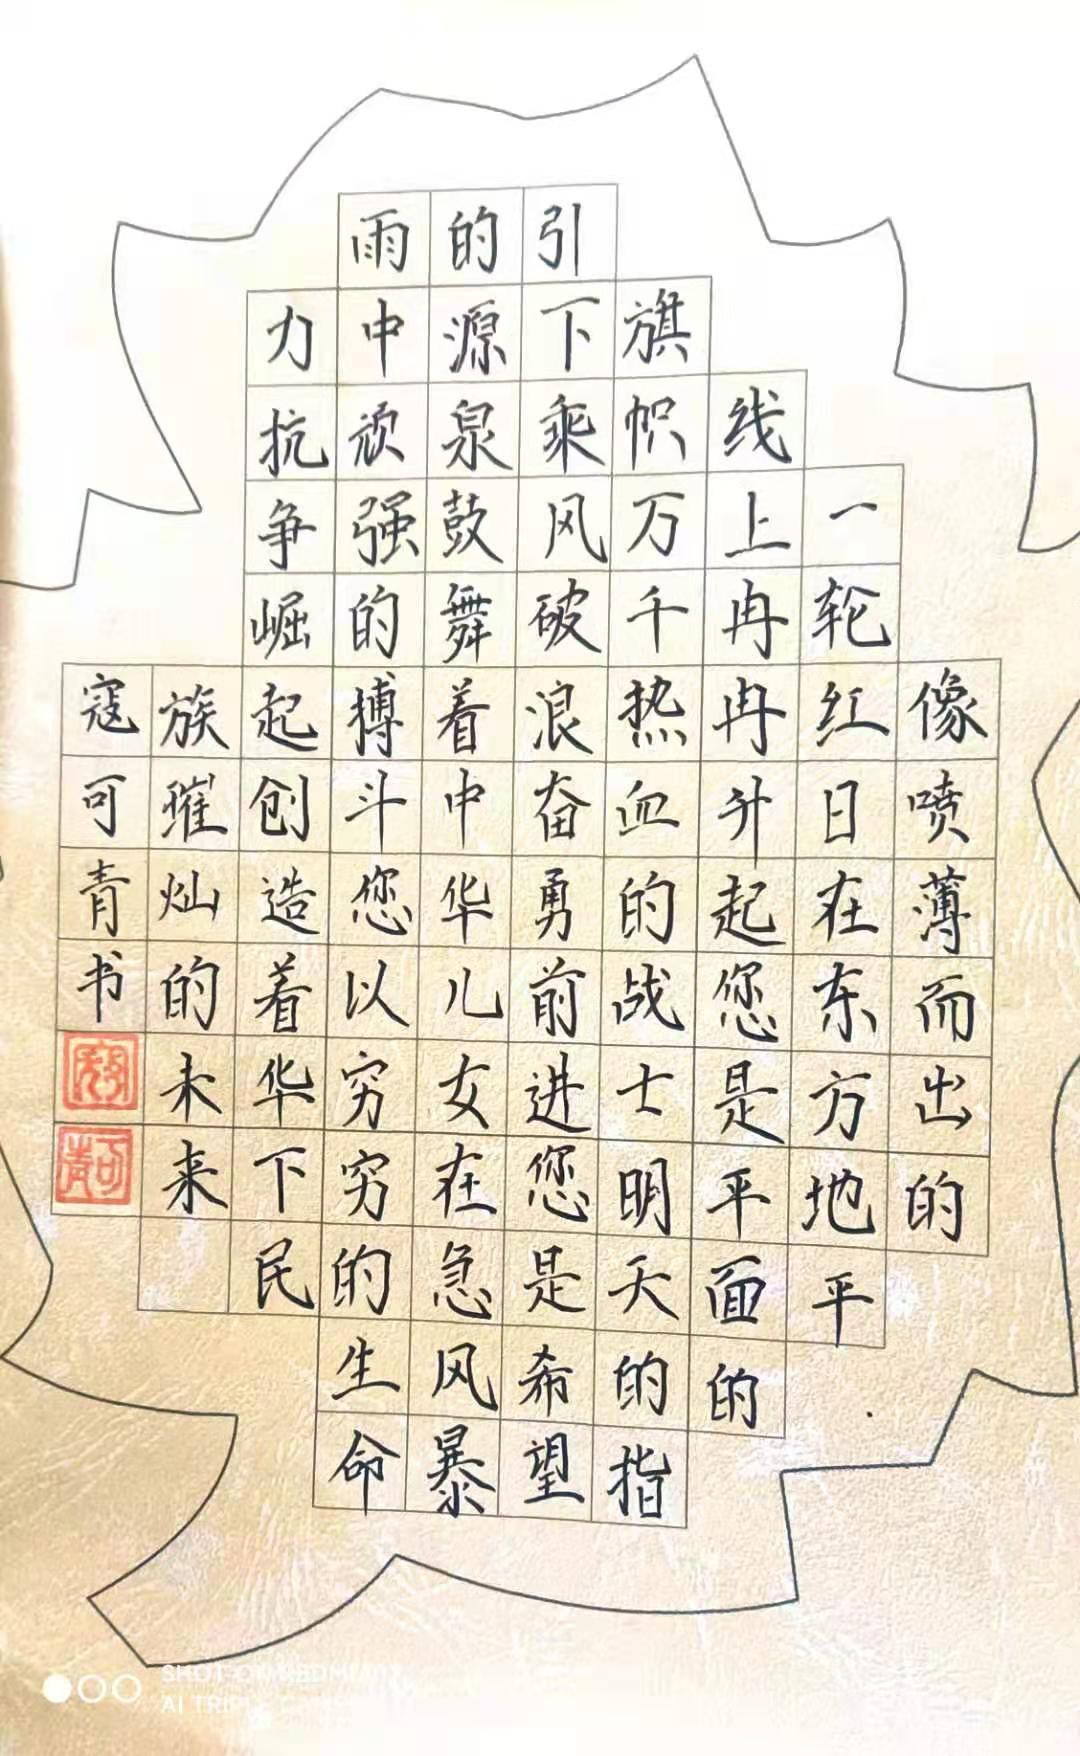 像喷薄而出的
一轮红日在东方地平
线上冉冉升起您是平面的
旗帜万千热血的战士明天的指
引下乘风破浪奋勇前进您是希望
的源泉鼓舞着中华儿女在急风暴
雨中顽强的搏斗您以穷穷的生命
力抗争崛起创造着华下民
族璀灿的未来
寇可青书
可青
SHOT ON
AI TRIPLE